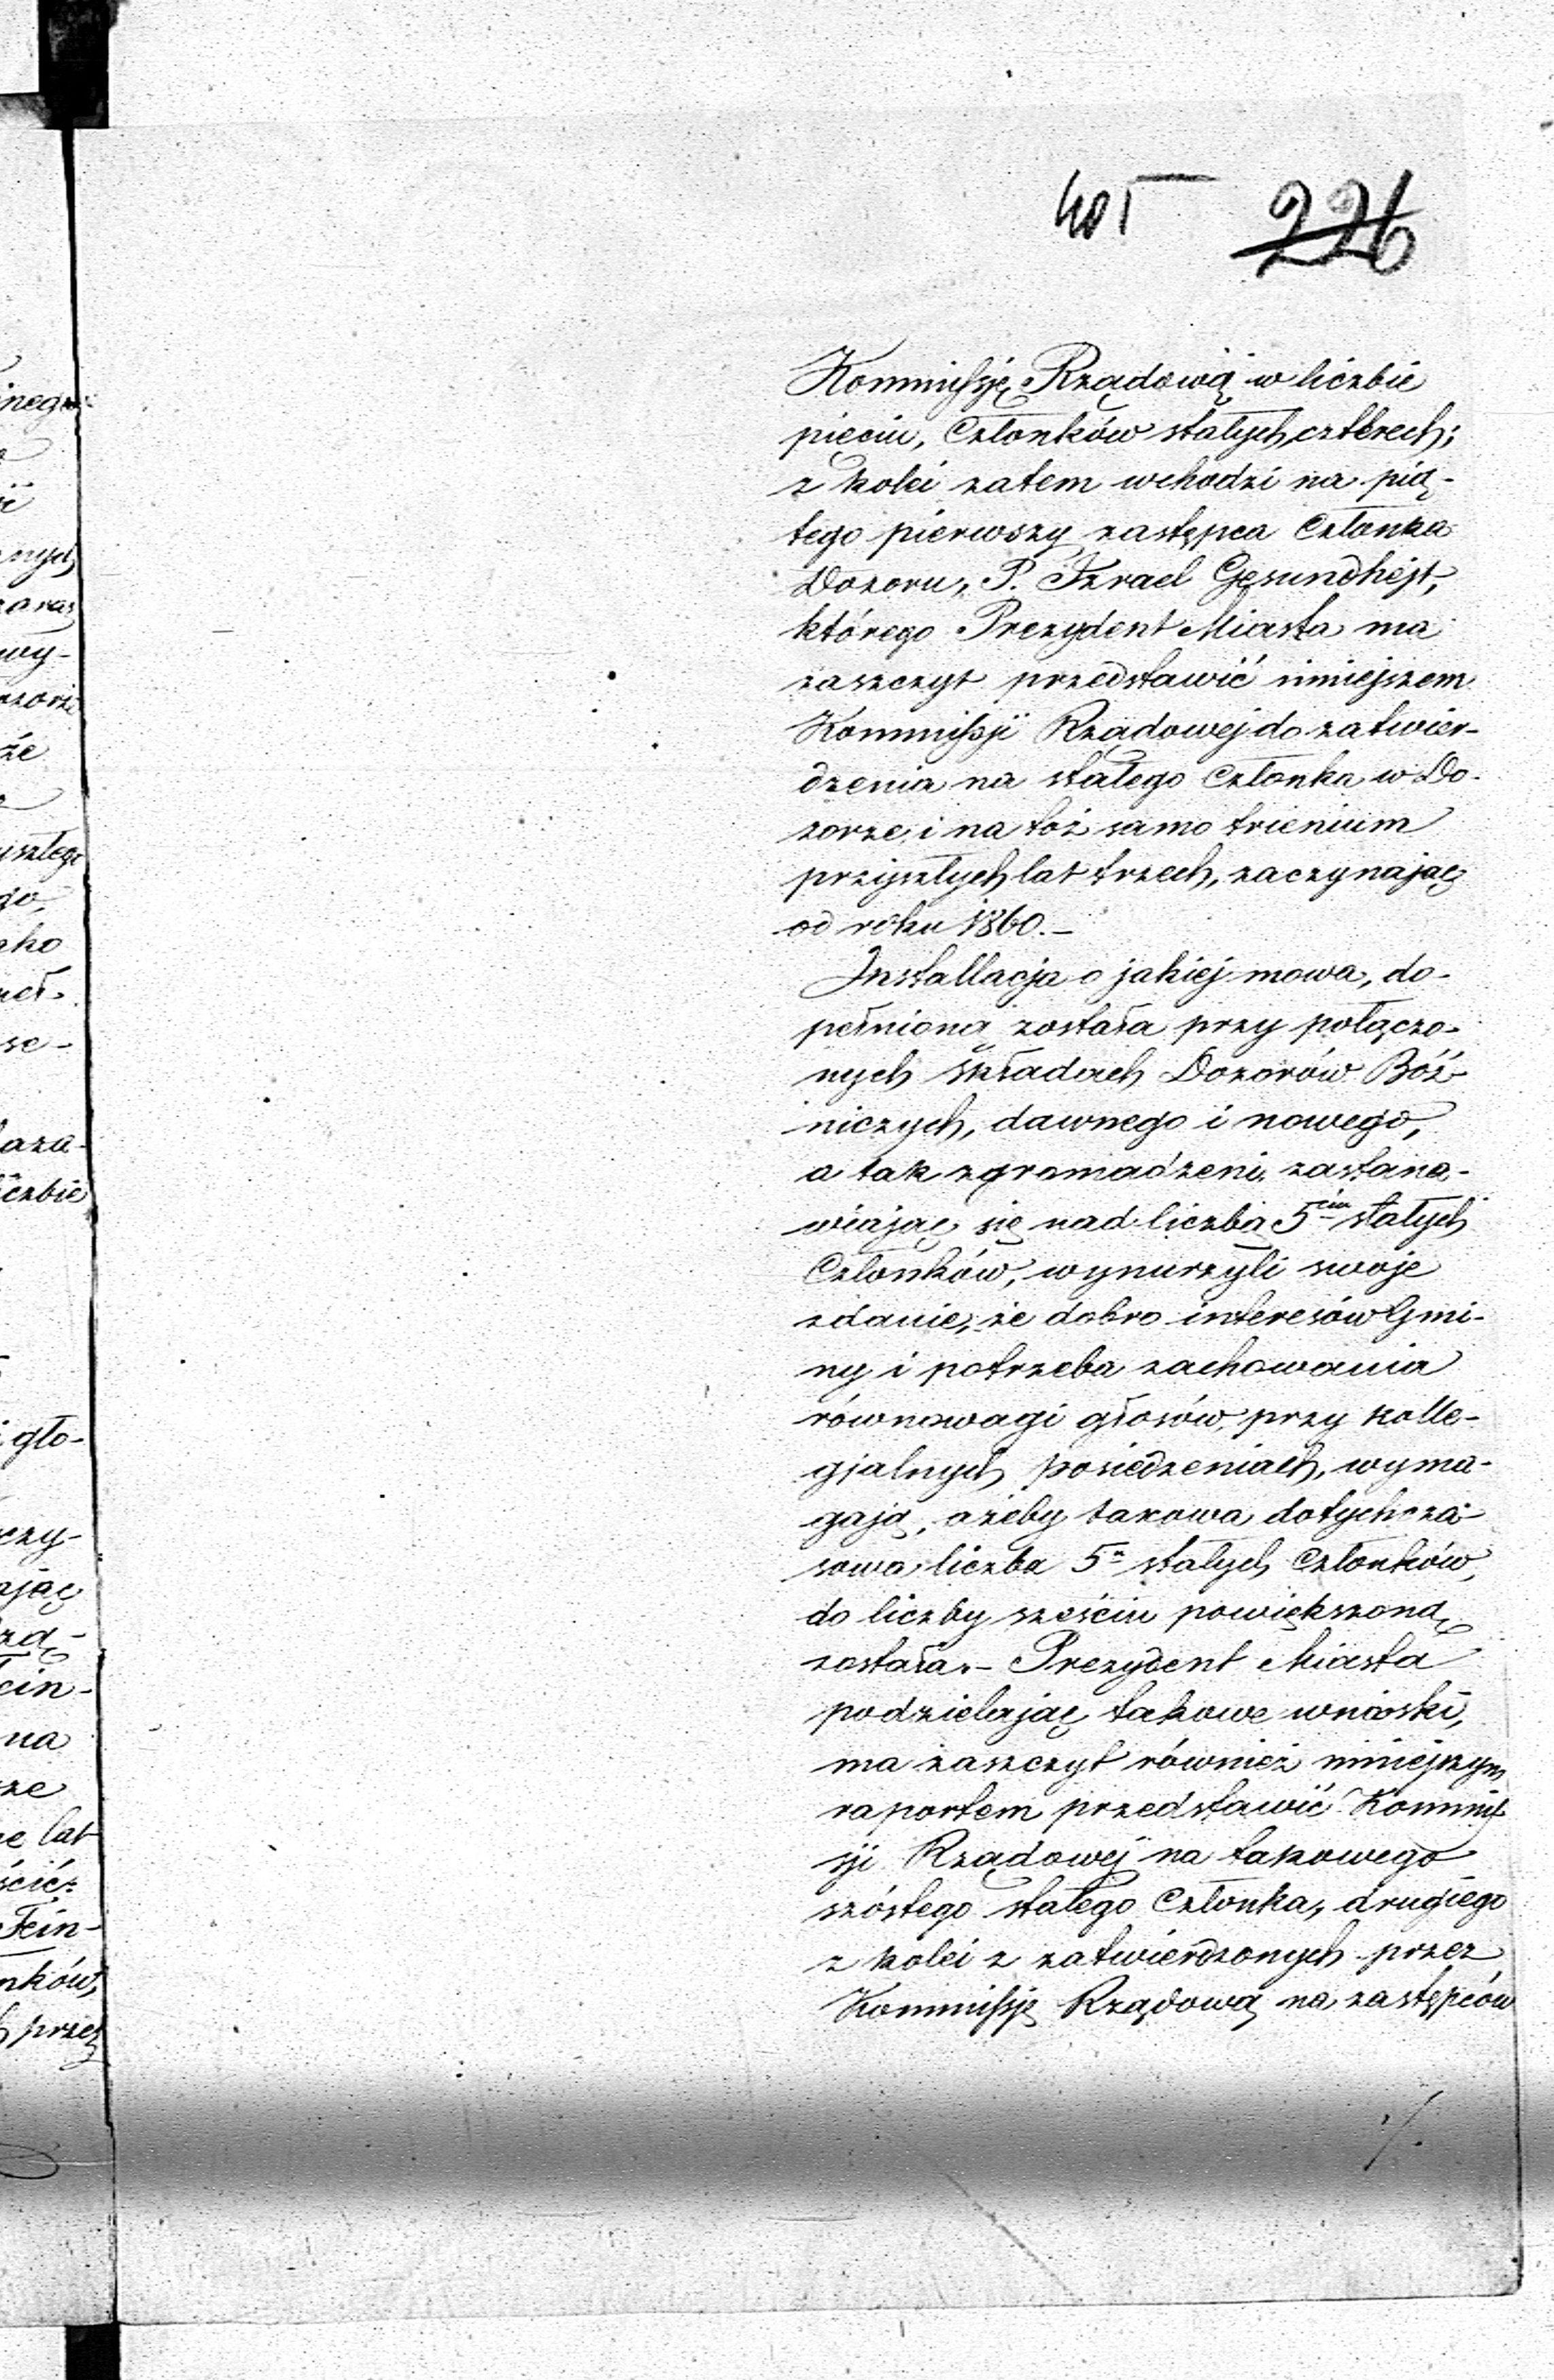 401 226
Kommissję Rządową w liczbie
pięciu, Członków stałych czterech;
z kolei zatem wchodzi na pią-
tego pierwszy zastępca Członka
Dozoru, P. Izrael Gesundhejt,
którego Prezydent Miasta ma
zaszczyt przedstawić niniejszem
Kommissji Rządowej do zatwier-
dzenia na stałego Członka w Do-
zorze, i na toż samo trienium
przyszłych lat trzech, zaczynając
od roku 1860.—
Installacja o jakiej mowa, do-
pełnioną została przy połączo-
nych składach Dozorów Bóż-
niczych, dawnego i nowego,
a tak zgromadzeni, zastana-
wiając się nad liczbą 5ciu stałych
Członków, wynurzyli swoje
zdanie, że dobro interesów Gmi-
ny i potrzeba zachowania
równowagi głosów, przy kolle-
gjalnych posiedzeniach, wyma-
gają, ażeby takowa dotychcza-
sowa liczba 5u stałych Członków,
do liczby sześciu powiększoną
została.— Prezydent Miasta
podzielając takowe wnioski,
ma zaszczyt również niniejszym
raportem przedstawić Kommis-
sji Rządowej na takowego
szóstego stałego Członka, drugiego
z kolei z zatwierdzonych przez
Kommissję Rządową na zastępców
./.
inego
nych
zaraz
wy-
że
yszłego
go,
ako
se-
aza-
iczbie
i gło-
czy-
ając
zą-
ein-
na
rze
e lat
ścić:
Fein-
nków,
przez